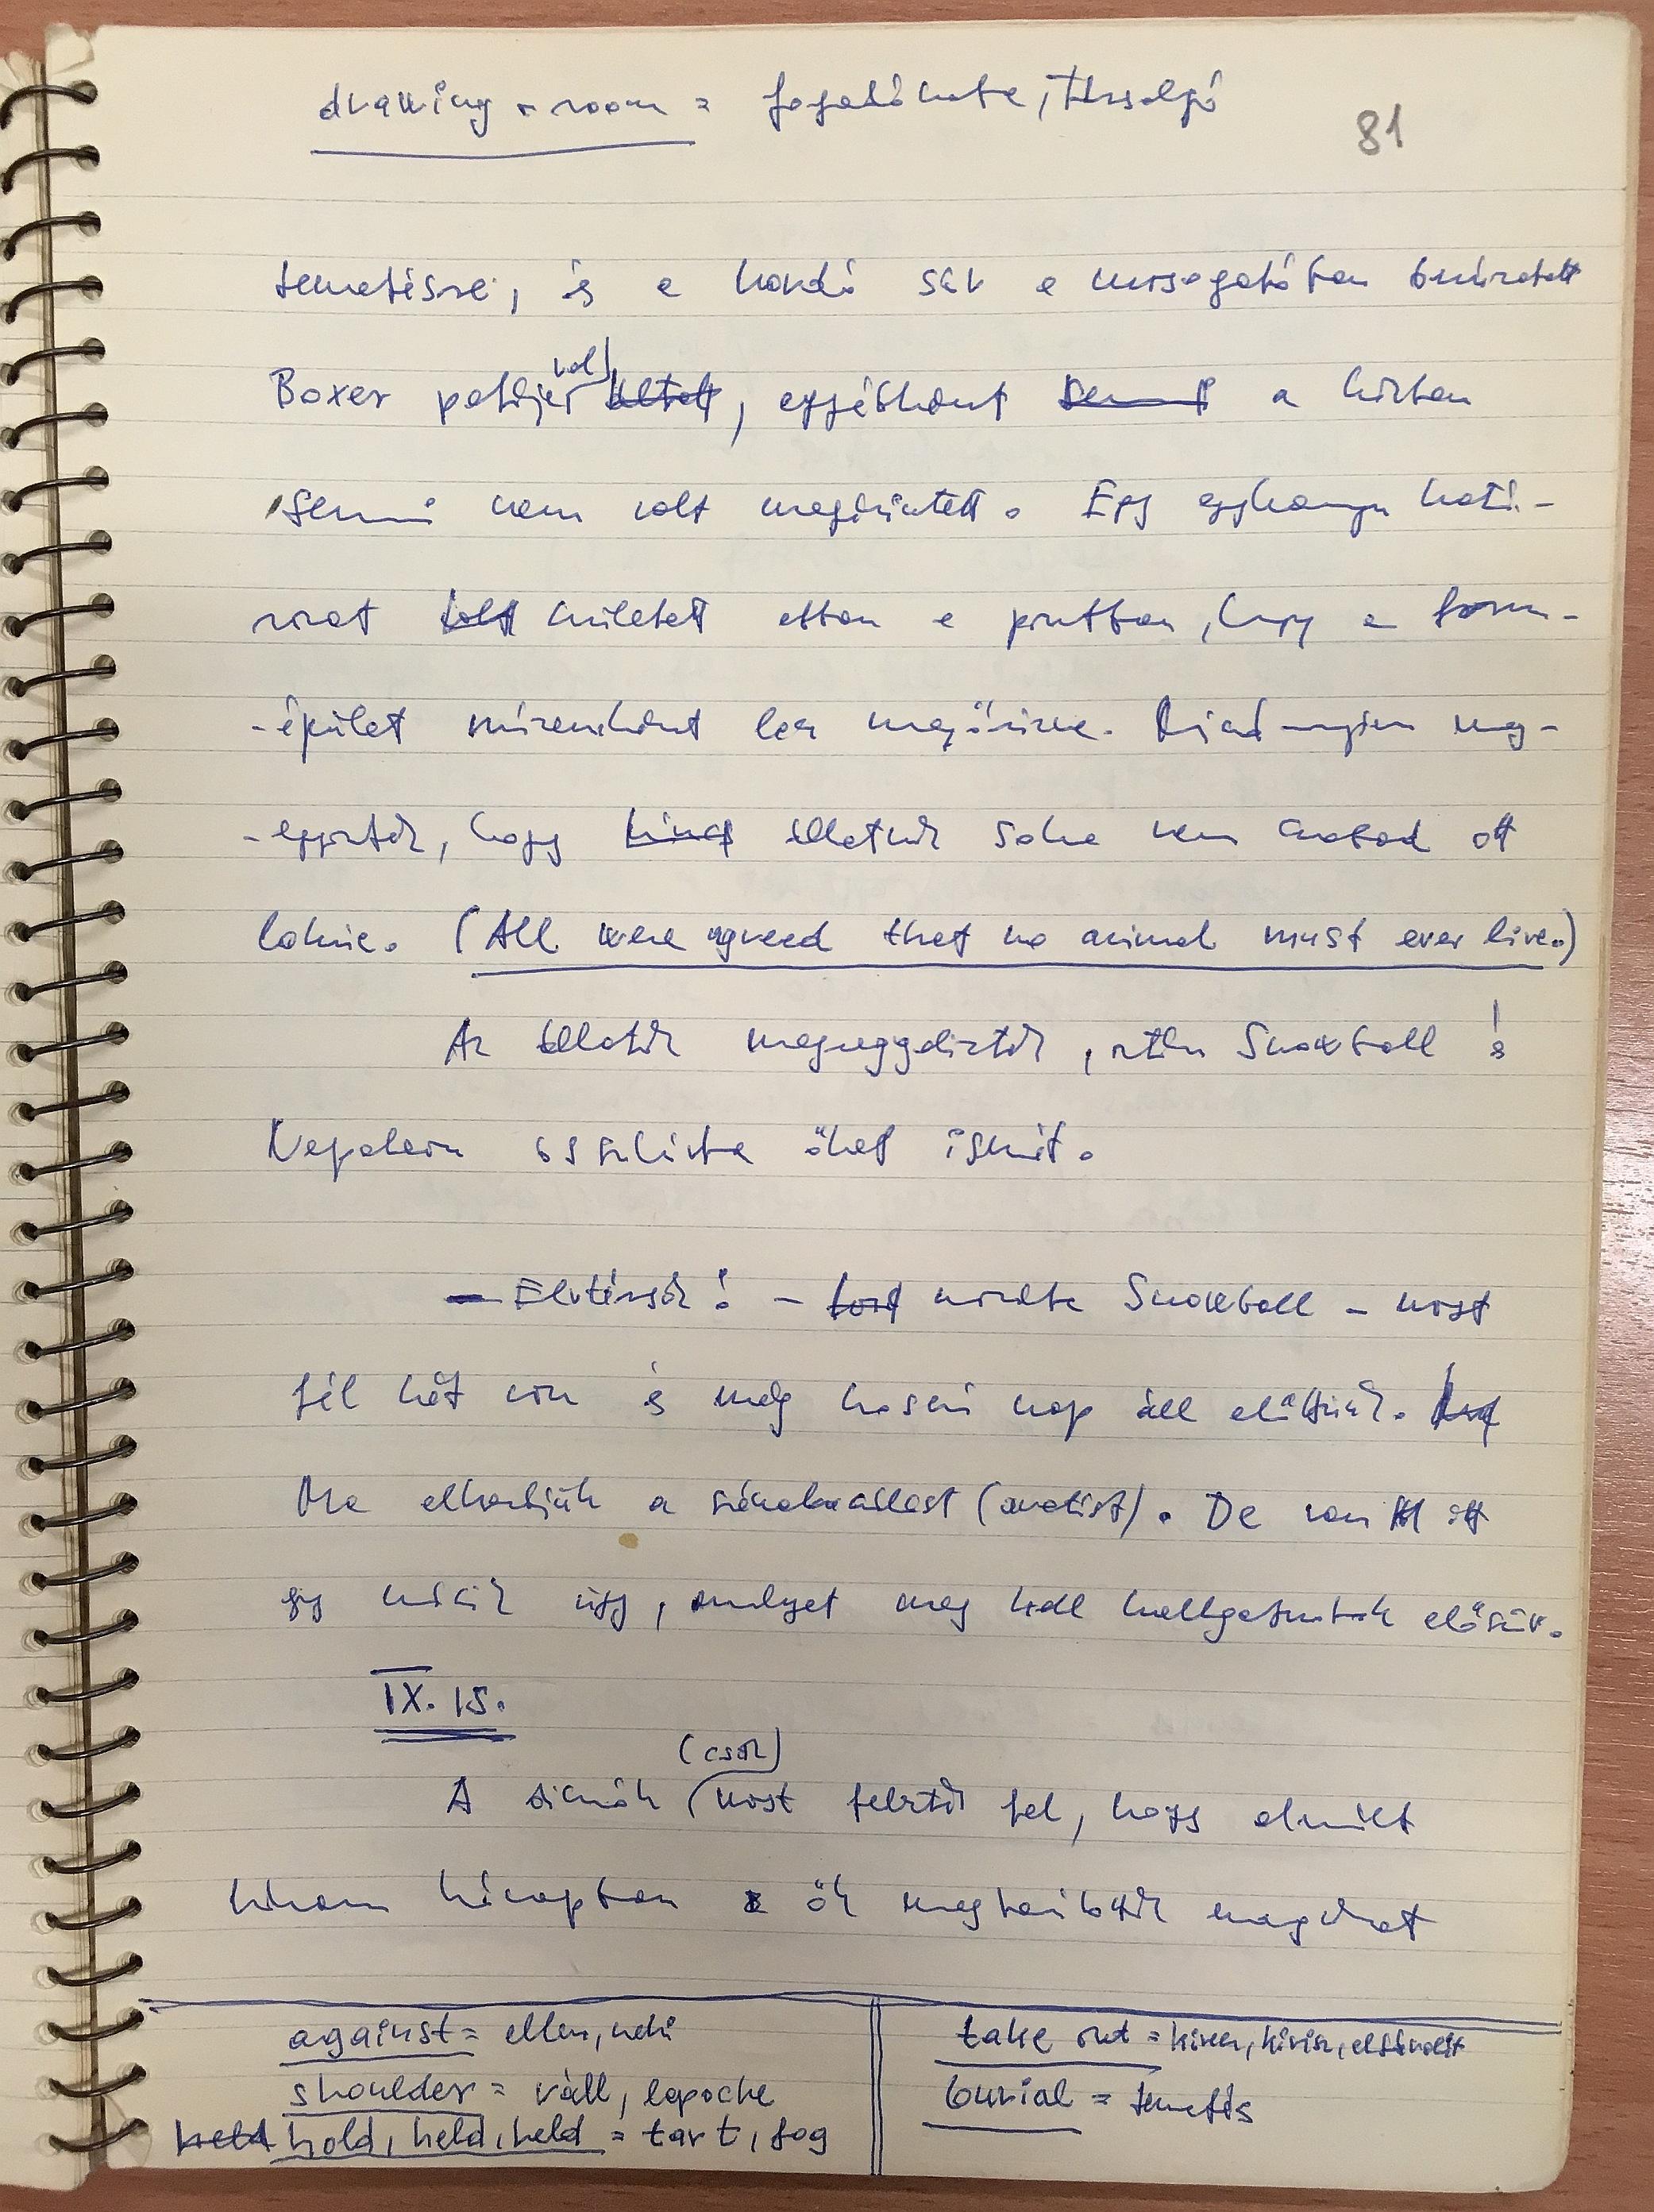 drawing-room = fogadószoba, társalgó
81
temetésre, és a hordó sör a mosogatóban bezúzatott
Boxer patájával, egyébként a házban
semmi nem volt megérintett. Egy egyhangú hatá-
rozat született abban a pontban, hogy a farm-
-épület múzeumként lesz megőrizve. Mindannyian meg-
-egyeztek, hogy állatnak soha nem szabad ott
laknia. (All were agreed that no animal must ever live.)
Az állatok megreggeliztek, aztán Snowball és
Napoleon összehívta őket ismét.
- Elvtársak! - mondta Snowball - most
fél hét van és még hosszú nap áll előttünk.
Ma elkezdjük a szénakaszálást (aratást). De van itt
egy másik ügy, amelyet meg kell hallgatnotok először.
IX. 15.
(csak)
A disznók most fedték fel, hogy elmúlt
három hónapban ők megtanították magukat
against = ellen, neki
shoulder = váll, lapocka
held hold, held, held = tart, fog
take out = kivesz, kivisz, eltávolít
burial = temetés